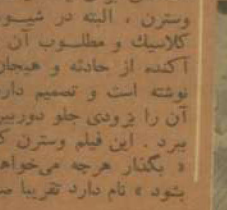 وسترن ، البته در شیـــو
کلاسیك و مطلــوب آن
آکنده از حادثه و هیجان
نوشته است و تصمیم دار
آن را بزودی جلو دوربین
ببرد . این فیلم وسترن ک
« بگذار هرچه می‌خواه
بشود » نام دارد تقریبا صد